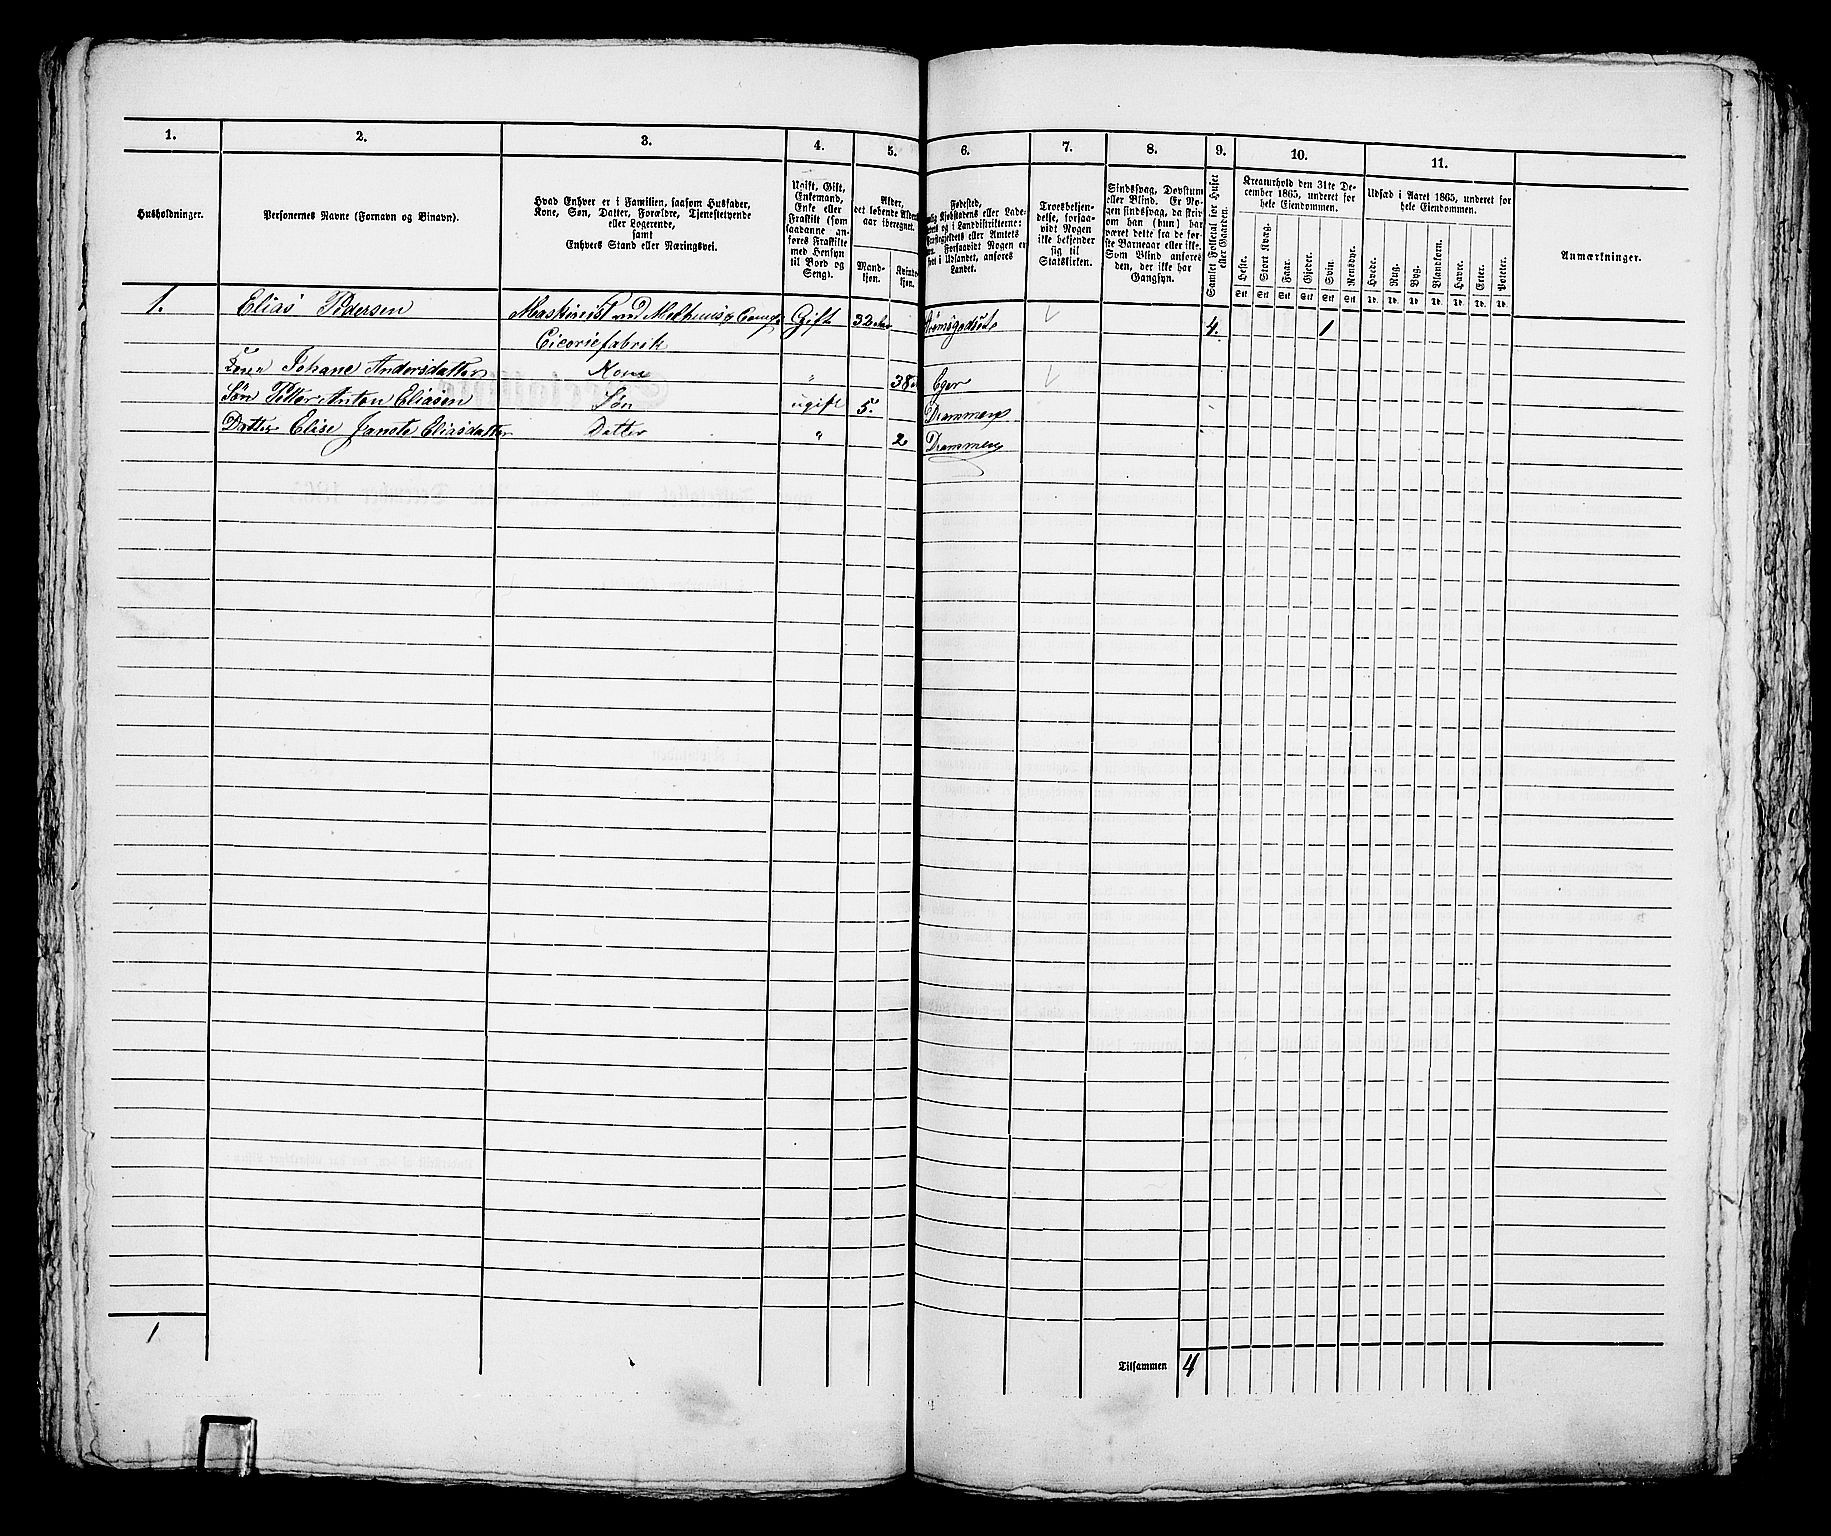 1. 2. 3. 4. 5. 6. 7. 8. 9. 10. 11.
Husholdninger.
Personernes Navne (Fornavn og Binavn).
Hvad Enhver er i Familien, saasom Husfader,
Kone, Søn, Datter, Forældre, Tjenestetyende
eller Logerende,
samt
Enhvers Stand eller Næringsvei.
Ugift, Gift,
Enkemand,
Enke eller
Fraskilt (som
saadanne an-
føres Fraskilte
med Hensyn
til Bord og
Seng).
Alder,
det løbende Alders-
aar iberegnet.
Mand-
kjøn.
Kvinde-
kjøn.
Fødested,
Kjøbstadens eller Lade-
og i Landdistrikterne:
Præstegjeldets eller Amtets
Forsaavidt Nogen er
i Udlandet, anføres
Landet.
Troesbekjen-
delse, forsaa-
vidt Nogen
ikke bekjender
sig til
Statskirken.
Sindssvag, Døvstum
eller Blind. Er No-
gen sindssvag, da skriv
om han (hun) har
været dette fra de før-
ste Barneaar eller ikke.
Som Blind anføres
den, der ikke har
Gangsyn.
Samlet Folketal for Huset
eller Gaarden.
Kreaturhold den 31te De-
cember 1865, underet for
hele Eiendommen.
Heste. Stort Kvæg. Faar. Gjeder. Svin. Rensdyr.
Stk Stk Stk Stk Stk Stk
Udsæd i Aaret 1865, underet for
hele Eiendommen.
Hvede. Rug. Byg. Blandkorn. Havre. Erter. Poteter.
Td. Td. Td. Td. Td. Td. Td.
Anmærkninger.
1. Elias Pedersen Maskinist ved Gift 32 4. 1
Cicoriefabrik
Johane Andersdatter Kone " 38 Eger
Søn Petter Anton Eliasen Søn ugift 5. Drammen
Datter Elise Eliasdatter Datter " 2 Drammen
1
Tilsammen 4